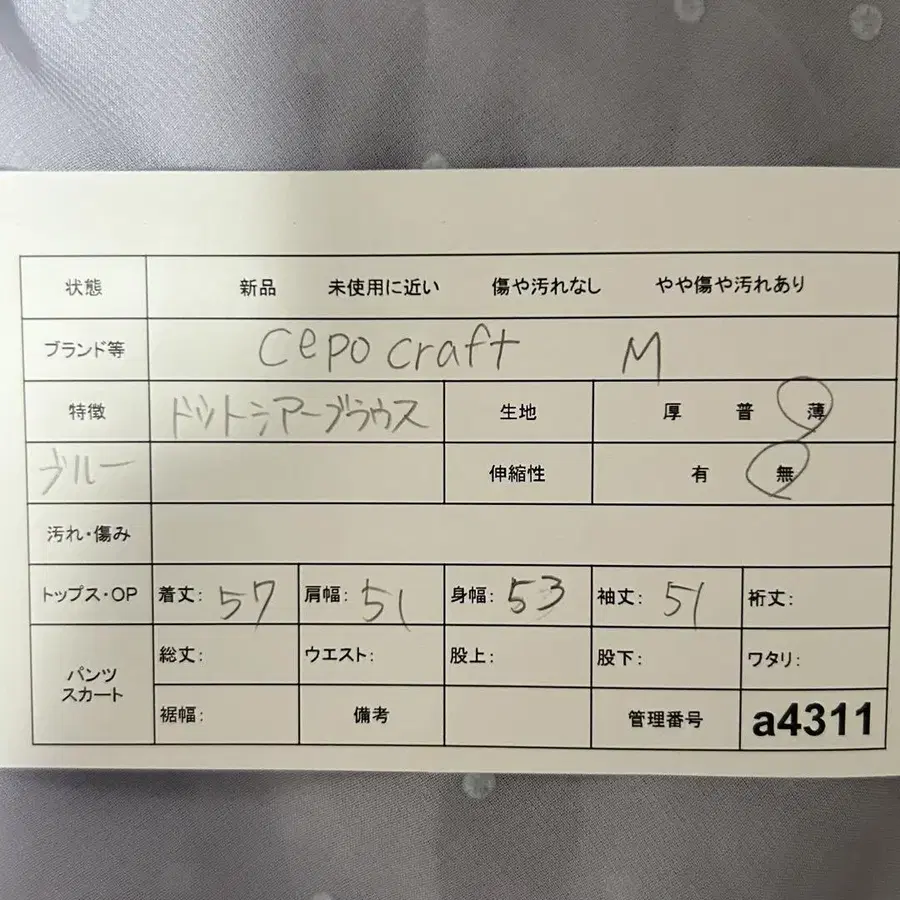 状態 新品 未使用に近い 傷や汚れなし やや傷や汚れあり
ブランド等 cepo craft M
特徴 ドットシアーブラウス 生地 厚 普 薄
ブルー 伸縮性 有 無
汚れ・傷み
トップス・OP 着丈: 57 肩幅: 51 身幅: 53 袖丈: 51 裄丈:
パンツ スカート 総丈: ウエスト: 股上: 股下: ワタリ:
裾幅: 備考 管理番号 a4311